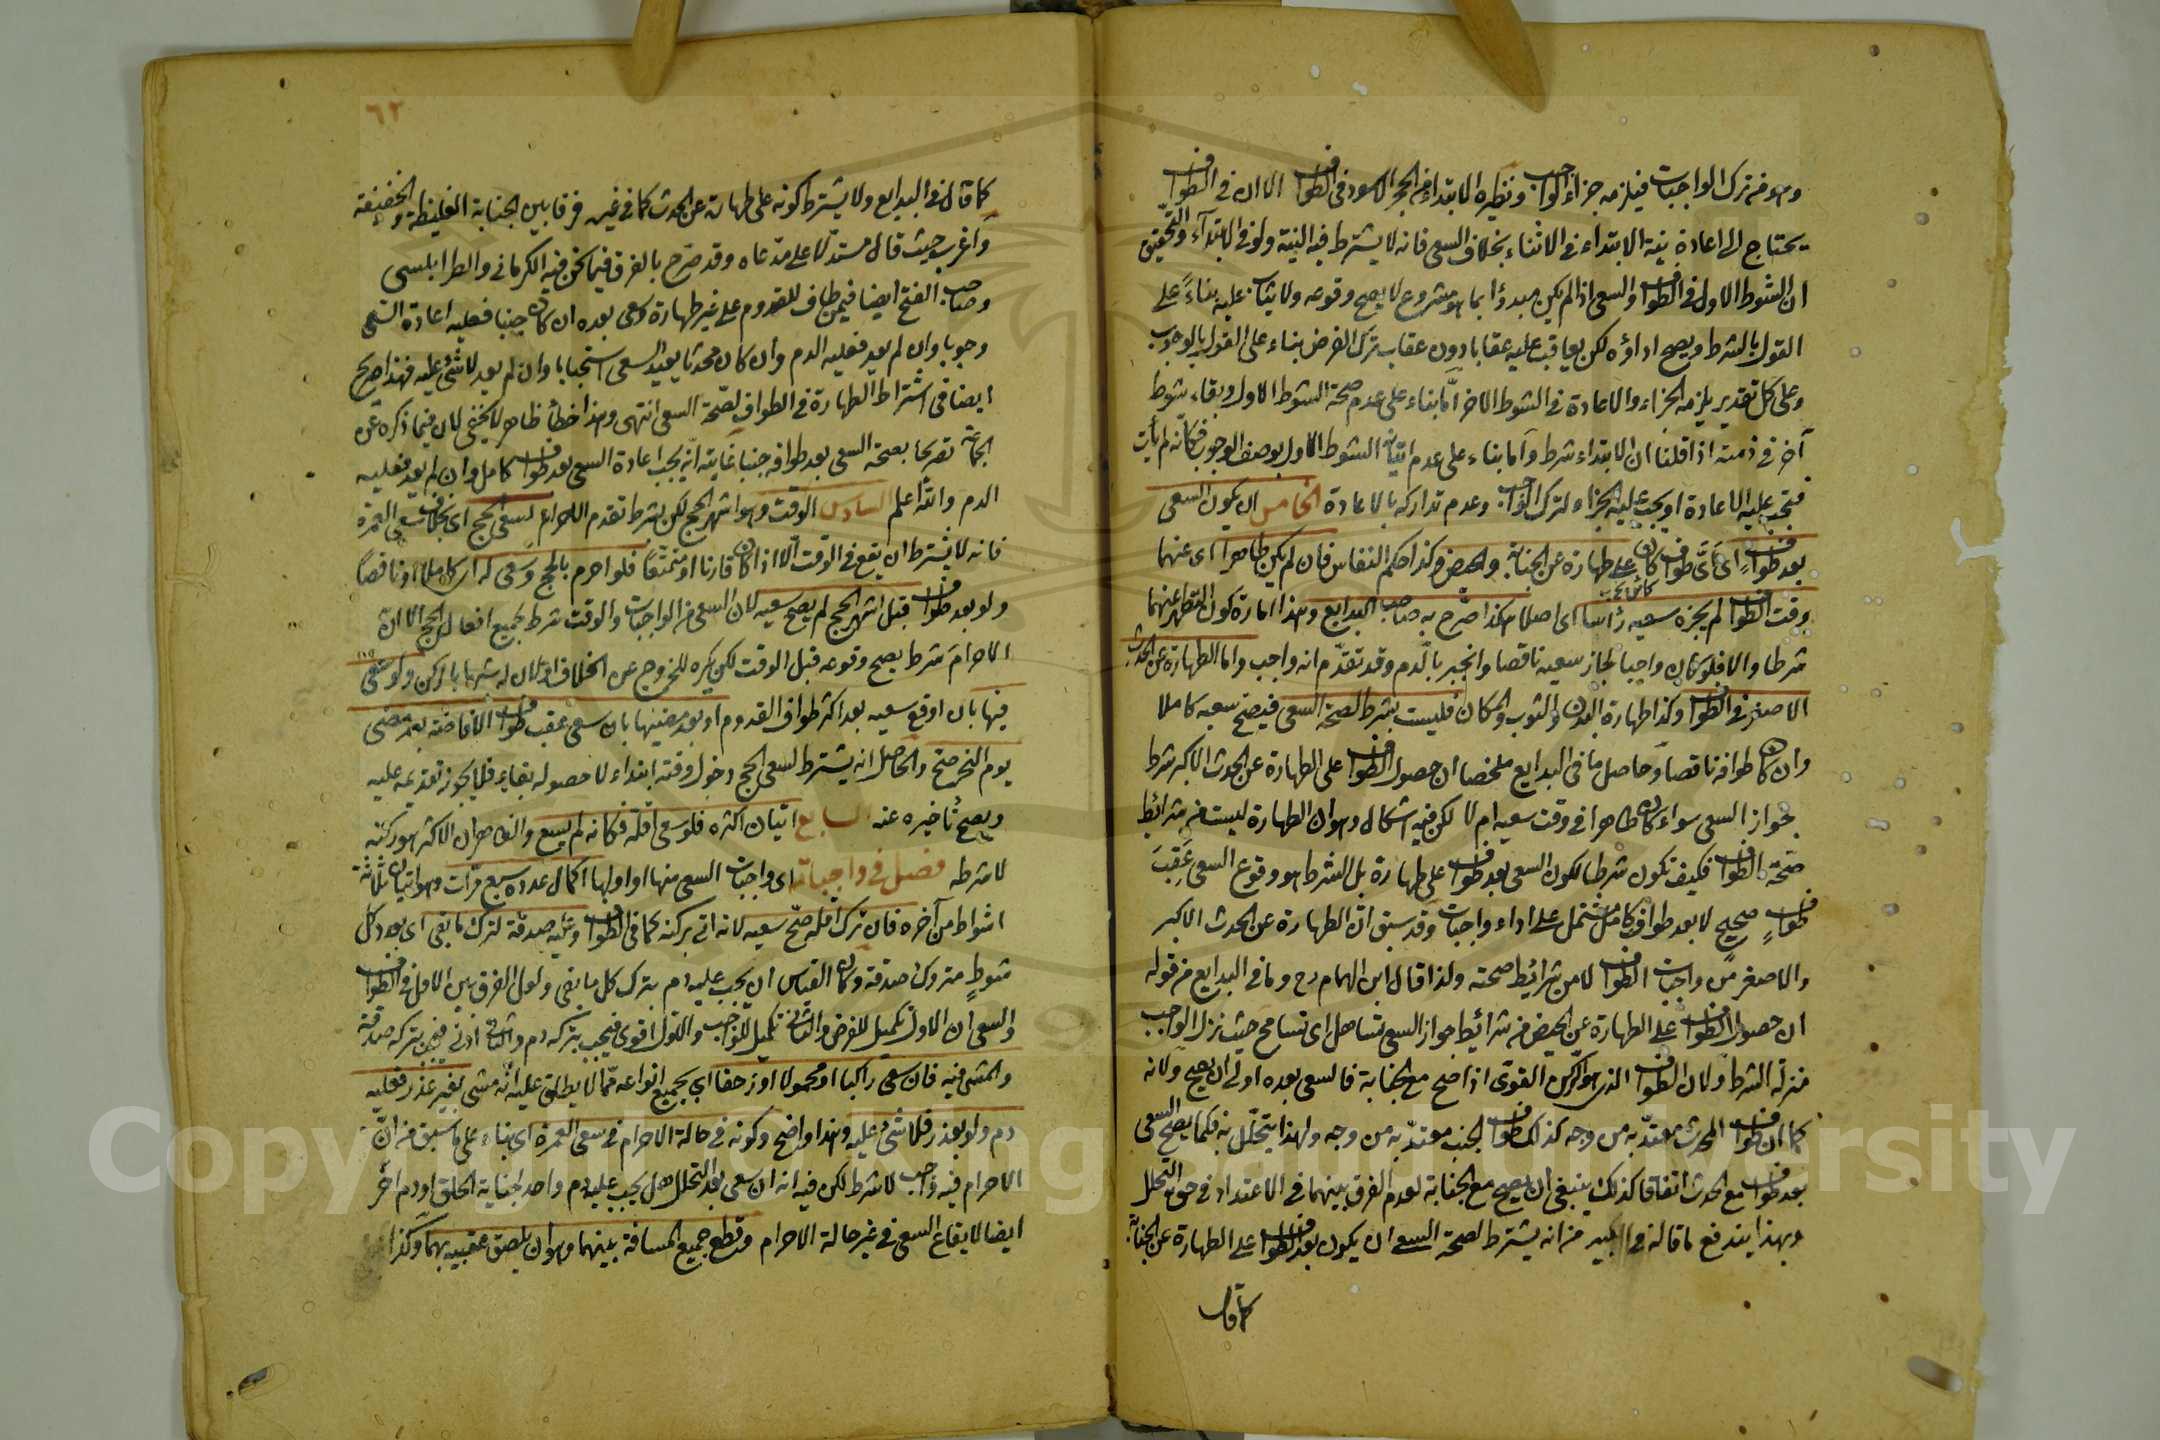 وهو من ترك الواجبات فيلزمه جزاء الواجب ونظيره الابتداء من الحجر الاسود في الطواف الا ان في الطواف
يحتاج الى اعادة نية الابتداء في الاثناء بخلاف السعي فانه لا يشترط فيه النية ولو في الابتداء والتحقيق
ان الشوط الاول في الطواف والسعي اذا لم يكن مبدوأ بما هو مشروع لا يصح وقوعه ولا يثاب عليه بناءً على
القول بالشرط ويصح اداؤه لكن يعاقب عليه عقابا دون عقاب ترك الفرض بناء على القول بالوجوب
وعلى كل تقدير يلزمه الجزاء والاعادة في الشوط الاخر امّا بناء على عدم صحة الشوط الاول وبقاء شوط
آخر في ذمته اذا قلنا ان الابتداء شرط وأما بناء على عدم اتيانه الشوط الاول بوصف الوجوب فكأنه لم يأت
فتجب عليه الاعادة او يجب عليه الجزاء لترك الواجب وعدم تداركه بالاعادة الخامس ان يكون السعي
بعد طواف اى اىّ طواف كان على طهارة عن الجنابة والحيض وكذا حكم النفاس فان لم يكن طاهرا اى عنهما
وقت الطواف لم يجزه سعيه رأسا اى اصلا هكذا صرّح به صاحب البدايع وهذا امارة كون التطهر عنهما
شرطا والا فلو كان واجبا لجاز سعيه ناقصا وانجبر بالدم وقد تقدّم انه واجب واما الطهارة عن الحدث
الاصغر في الطواف وكذا طهارة البدن والثوب والمكان فليست بشرط لصحة السعي فيصح سعيه كاملا
وان كان طوافه ناقصا وحاصل ما في البدايع ملخصا ان حصول الطواف على الطهارة عن الحدث الاكبر شرط
لجواز السعي سواء كان طاهرا في وقت سعيه ام لا لكن فيه اشكال وهو ان الطهارة ليست من شرائط
صحّة الطواف فكيف تكون شرطا لكون السعي بعد طواف على طهارة بل الشرط هو وقوع السعي عَقِبَ
طوافٍ صحيح لا بعد طواف كامل مشتمل على اداء واجبات وقد سبق انّ الطهارة عن الحدث الاكبر
والاصغر من واجبات الطواف لا من شرائط صحته ولذا قال ابن الهمام رح وما في البدايع من قوله
ان حصول الطواف على الطهارة عن الحيض من شرائط جواز السعي تساهل اى تسامح حيث نزل الواجب
منزلة الشرط ولان الطواف الذى هو الركن القوى اذا صح مع الجنابة فالسعي بعده اولى ان يصح ولانه
كما ان طواف المحدث معتدّ به من وجه كذلك طواف الجنب معتدّ به من وجه ولهذا يتحلّل به فكما يصح السعي
بعد طواف مع الحدث اتفاقا كذلك ينبغي ان يصح مع الجنابة لعدم الفرق بينهما في الاعتداد في حق التحلل
وبهذا يندفع ما قاله في الكبير من انه يشترط لصحة السعي ان يكون بعد الطواف على الطهارة عن الجنابة
كما قال
٦٢
كما قال في البدايع ولا يشترط كونه على طهارة عن الحدث كما في غيره فرقا بين الجنابة الغليظة والخفيفة
واغرب حيث قال مستدلا على مدّعاه وقد صرّح بالفرق فيما نحن فيه الكرماني والطرابلسي
وصاحب الفتح ايضا فيمن طاف للقدوم على غير طهارة وسعى بعده ان كان جنبا فعليه اعادة السعي
وجوبا وان لم يعد فعليه الدم وان كان محدثا يعيد السعي استحبابا وان لم يعد لا شئ عليه فهذا صريح
ايضا في اشتراط الطهارة في الطواف لصحّة السعي انتهى وهذا خطأ ظاهر لا يخفى لان فيما ذكره عن
الجماعة تصريحا بصحة السعي بعد طوافه جنبا غايته انّه يجب اعادة السعي بعد طواف كامل وان لم يعد فعليه
الدم والله اعلم السادس الوقت وهو اشهر الحج لكن بشرط تقدم الاحرام لسعي الحج اى بخلاف سعي العمرة
فانه لا يشترط ان يقع في الوقت الا اذا كان قارنا او متمتعًا فلو احرم بالحج وسعى له اى كاملا او ناقصًا
ولو بعد طواف قبل اشهر الحج لم يصح سعيه لان السعي من الواجبات والوقت شرط لجميع افعال الحج الا ان
الاحرامَ شرط يصح وقوعه قبل الوقت لكن يكره للخروج عن الخلاف او لان له شبها بالركن ولو سعى
فيها بان اوقع سعيه بعد اكثر طواف القدوم او بعد مضيها بان سعى عقب طواف الافاضة بعد مضى
يوم النحر صح والحاصل انه يشترط لسعي الحج دخول وقته ابتداء لا حصوله بقاء فلا يجوز تقديمه عليه
ويصح تأخيره عنه السابع اتيان اكثره فلو سعى اقله فكانه لم يسع والظاهر ان الاكثر هو ركنه
لا شرطه فصل في واجباته اى واجبات السعي منها او اولها اكمال عدده سبع مرّات وهو اتيان ثلاثة
اشواط من آخره فان ترك اقله صحّ سعيه لانه اتى بركنه كما في الطواف وعليه صدقة لترك ما بقى اى بعدد كل
شوطٍ متروك صدقة وكان القياس ان يجب عليه دم بترك كل ما بقى ولعل الفرق بين الاقل في الطواف
والسعي ان الاول تكميل للفرض والثانى تكميل للواجب والاول اقوى فيجب بتركه دم والثانى ادنى فيجب بتركه صدقة
والمشى فيه فان سعى راكبا او محمولا او زحفا اى بجميع انواعه ممّا لا يطلق عليه انّه مشى بغير عذر فعليه
دم ولو بعذر فلا شئ عليه وهذا واضح وكونه في حالة الاحرام في سعى العمرة اى بناء على ما سبق من انّ
الاحرام فيه واجب لا شرط لكن فيه انه ان سعى بعد التحلل هل يجب عليه دم واحد لجناية الحلق او دم اخر
ايضا لايقاع السعي في غير حالة الاحرام وقطع جميع المسافة بينهما وهو ان يلصق عقبيه بهما وكذا
Copyright © King Saud University